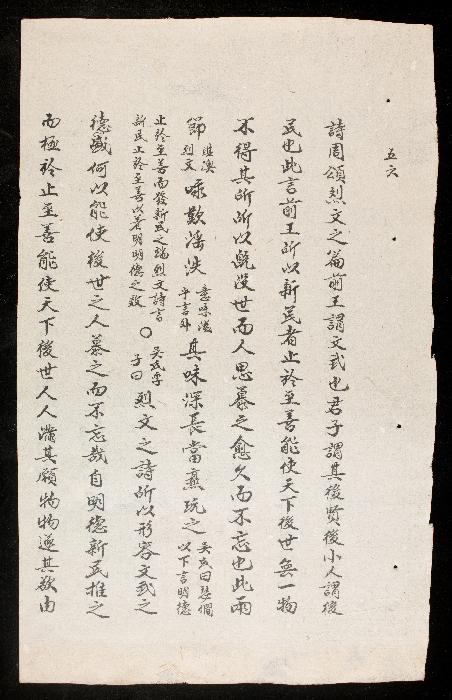 五六
詩周頌烈文之篇前王謂文武也君子謂其後賢後小人謂後
民也此言前王所以新民者止於至善能使天下後世無一物
不得其所所以旣沒世而人思慕之愈久而不忘也此兩
節淇澳烈文咏歎淫泆意味溢乎言外其味深長當熟玩之吳氏曰瑟僩以下言明德
止於至善而發新民之端烈文詩言新民止於至善以著明明德之效○吳氏季子曰烈文之詩所以形容文武之
德盛何以能使後世之人慕之而不忘哉自明德新民推之
而極於止至善能使天下後世人人滿其願物物遂其欲由